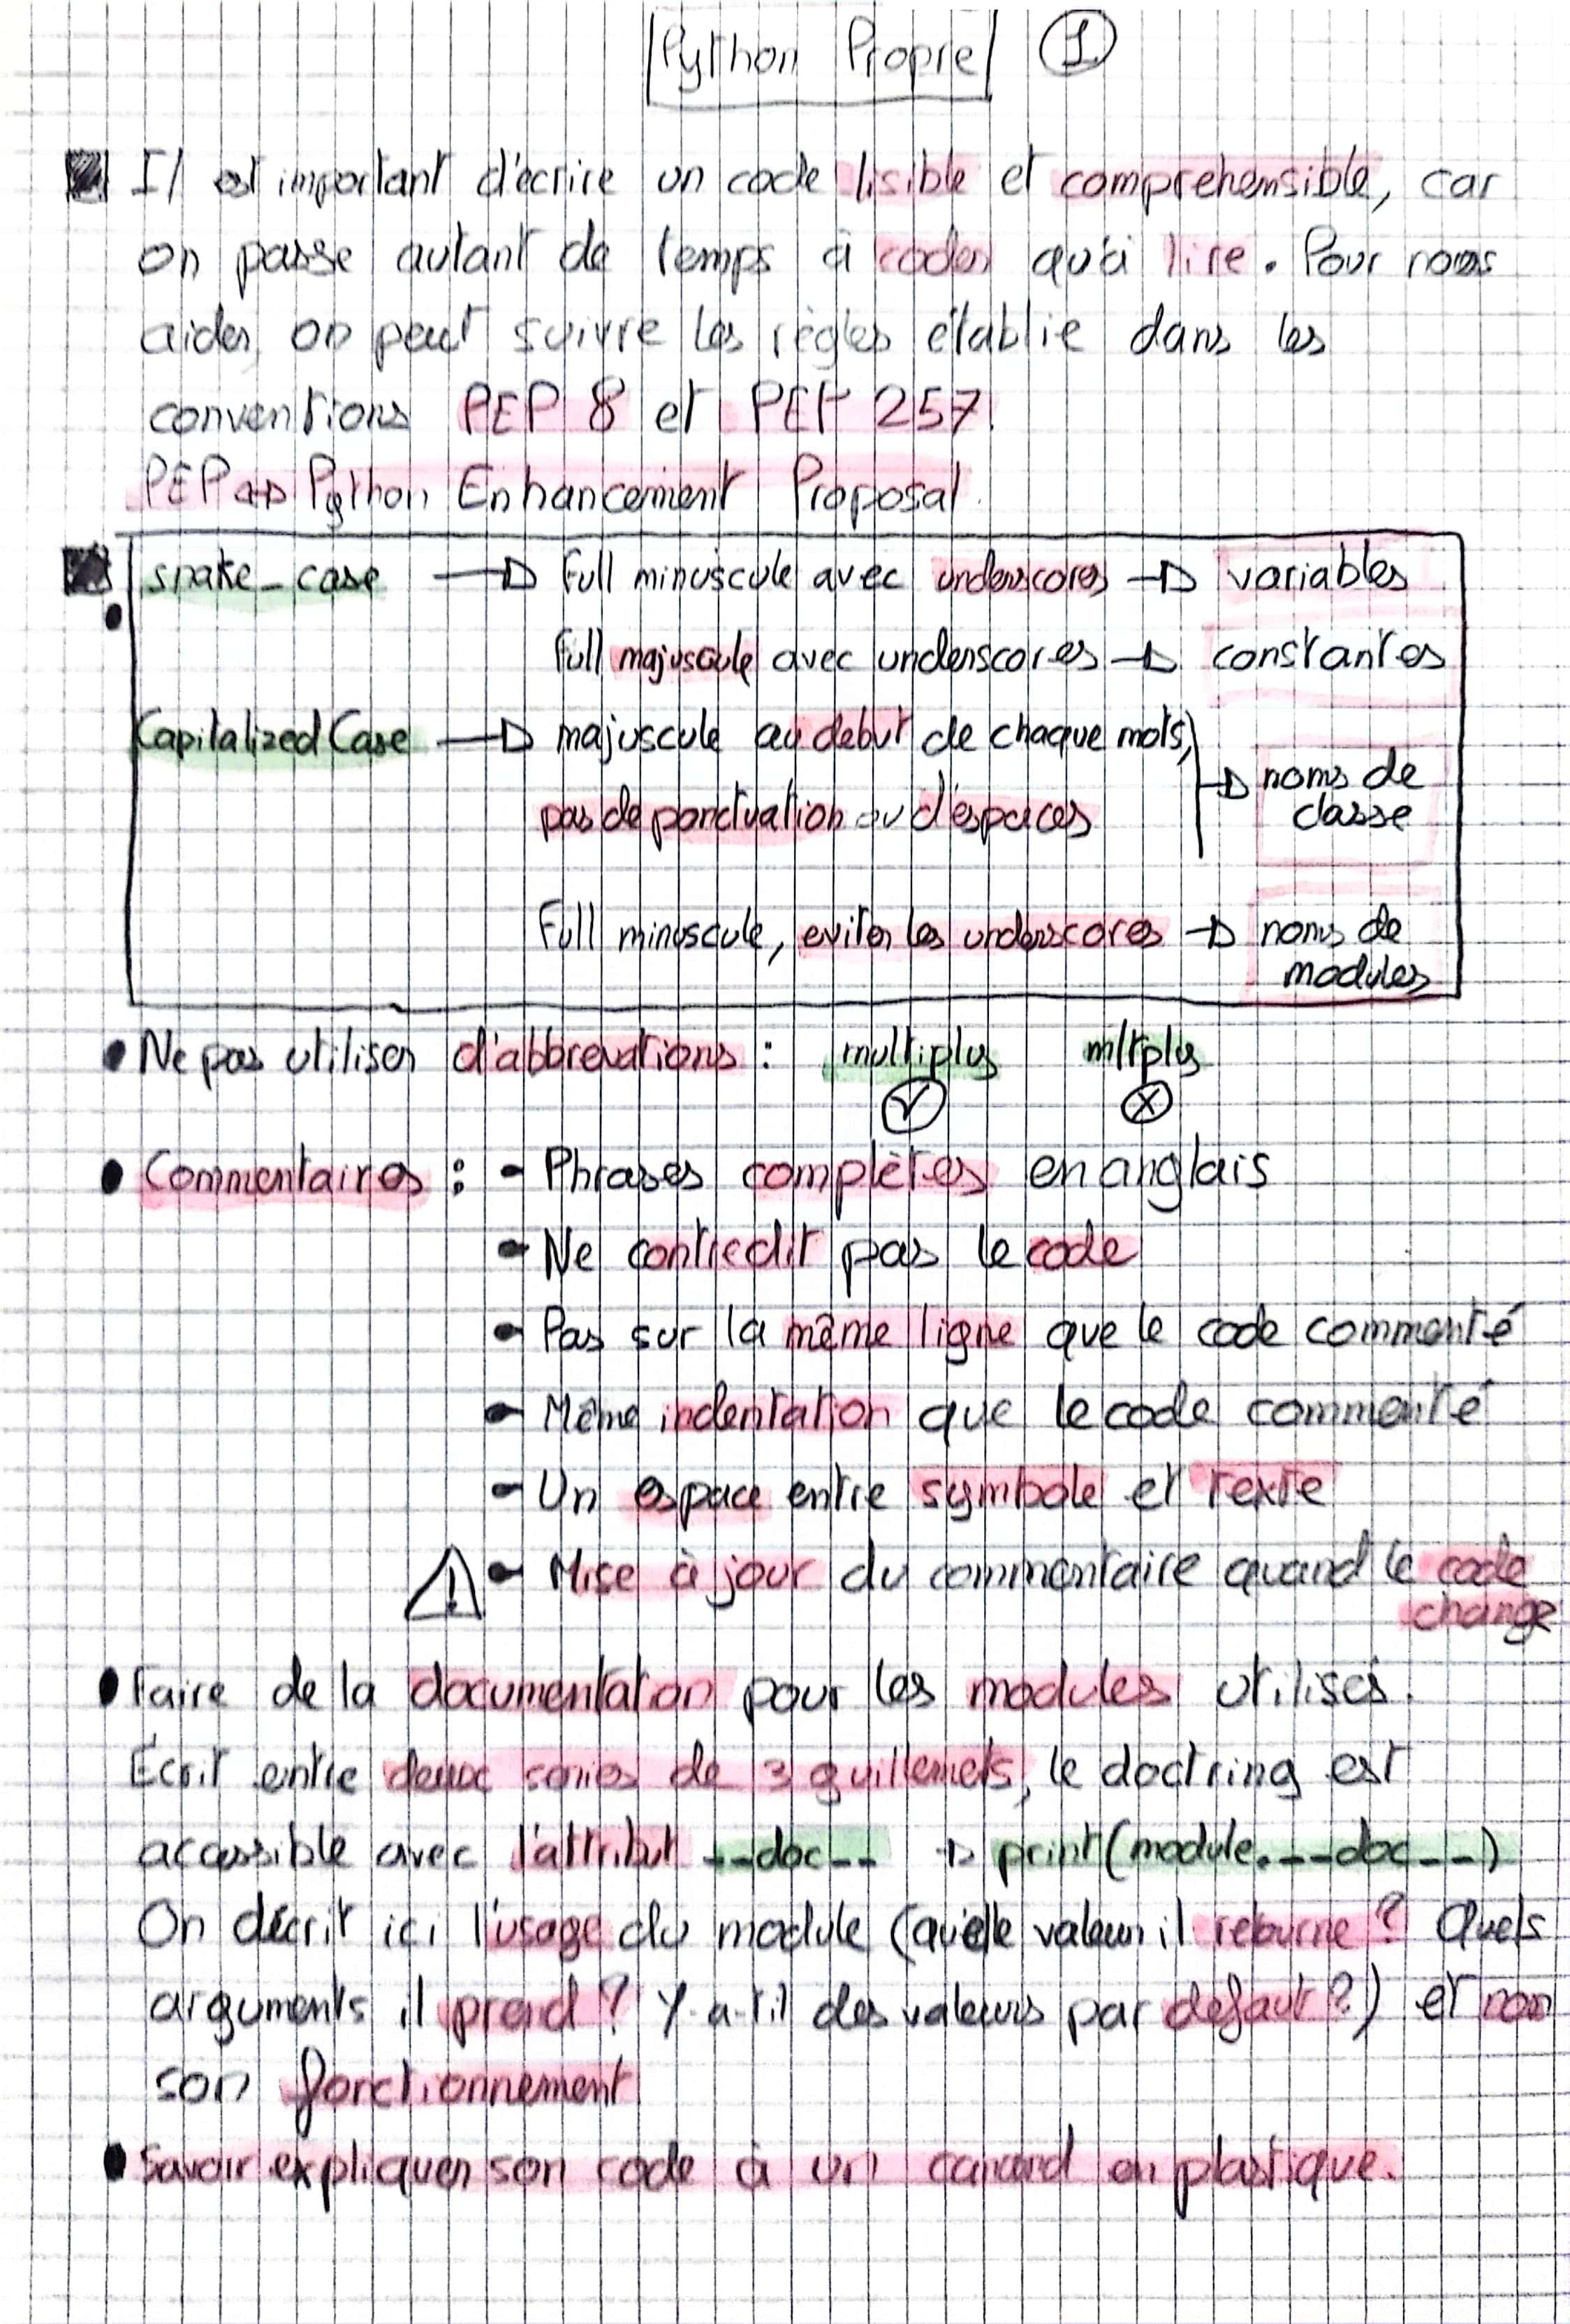 Python Propre 1
Il est important d'écrire un code lisible et comprehensible, car
on passe autant de temps à coder qu'à lire. Pour nous
aider, on peut suivre les règles établie dans les
conventions PEP 8 et PEP 257.
PEP => Python Enhancement Proposal.
snake_case → Full minuscule avec underscores → variables
Full majuscule avec underscores → constantes
Capitalized Case → majuscule au debut de chaque mots,
pas de ponctuation ou d'espaces → noms de classe
Full minuscule, eviter les underscores → noms de modules
• Ne pas utiliser d'abbrevations : multiply ✓ mltply ✗
• Commentaires : - Phrases complètes en anglais
- Ne contredit pas le code
- Pas sur la même ligne que le code commenté
- Même indentation que le code commenté
- Un espace entre symbole et texte
⚠ - Mise à jour du commentaire quand le code
change
• Faire de la documentation pour les modules utilisés.
Écrit entre deux séries de 3 guillemets, le doctring est
accessible avec l'attribut __doc__ → print(module.__doc__)
On décrit ici l'usage du module (quelle valeur il retourne ? Quels
arguments il prend ? Y-a-t'il des valeurs par defaut ?) et non
son fonctionnement
• Savoir expliquer son code à un canard en plastique.